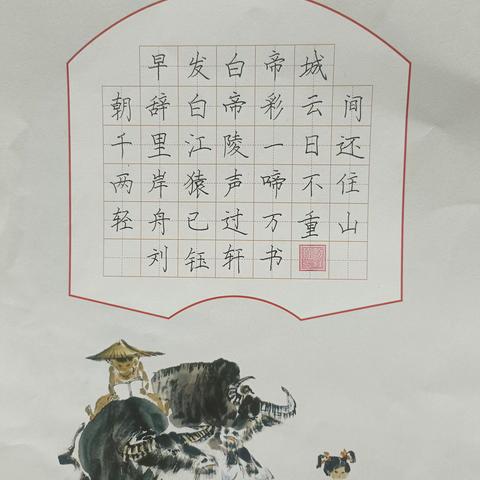 早发白帝城
朝辞白帝彩云间
千里江陵一日还
两岸猿声啼不住
轻舟已过万重山
刘钰轩书